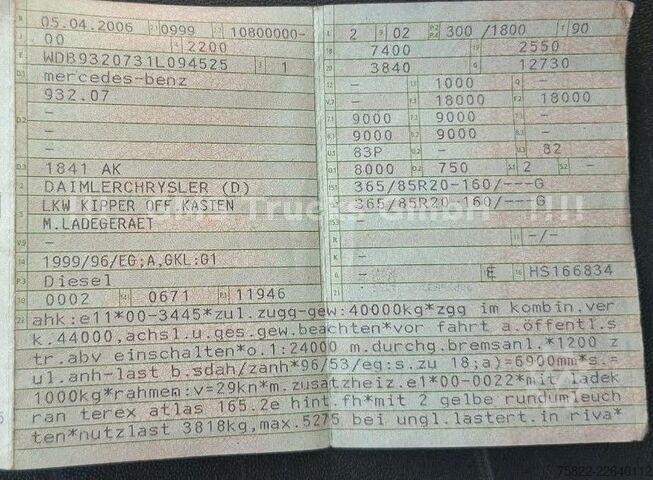 B 05.04.2006 2.1 0999 2.2 10800000-
J 00 4 2200
E WDB9320731L094525 3 1
D.1 mercedes-benz
932.07
D.2 -
-
-
D.3 1841 AK
2 DAIMLERCHRYSLER (D)
5 LKW KIPPER OFF.KASTEN
M.LADEGERAET
V.9 -
14 1999/96/EG;A,GKL:G1
P.3 Diesel
10 0002 14.1 0671 P.1 11946
L 2 9 02 P.2 P.4 300 /1800 T 90
18 7400 19 2550
20 3840 G 12730
12 - 13 1000 Q -
V.7 - F.1 18000 F.2 18000
7.1 9000 7.2 9000 7.3 -
8.1 9000 8.2 9000 8.3 -
U.1 83P U.2 - U.3 82
O.1 8000 O.2 750 S.1 2 S.2 -
15.1 365/85R20-160/---G
15.2 365/85R20-160/---G
15.3 -
R - 11 -/-
K -
6 - 17 E 16 HS166834
21 -
22 ahk:e11*00-3445*zul.zugg-gew:40000kg*zgg im kombin.ver
k.44000,achsl.u.ges.gew.beachten*vor fahrt a.öffentl.s
tr.abv einschalten*o.1:24000 m.durchg.bremsanl.*1200 z
ul.anh-last b.sdah/zanh*96/53/eg:s.zu 18;a)=6900mm*s.=
1000kg*rahmem:v=29kn*m.zusatzheiz.e1*00-0022*mit ladek
ran terex atlas 165.2e hint.fh*mit 2 gelbe rundumleuch
ten*nutzlast 3818kg,max.5275 bei ungl.lastert.in riva*
Trucks GmbH !!!!
75822-22640112